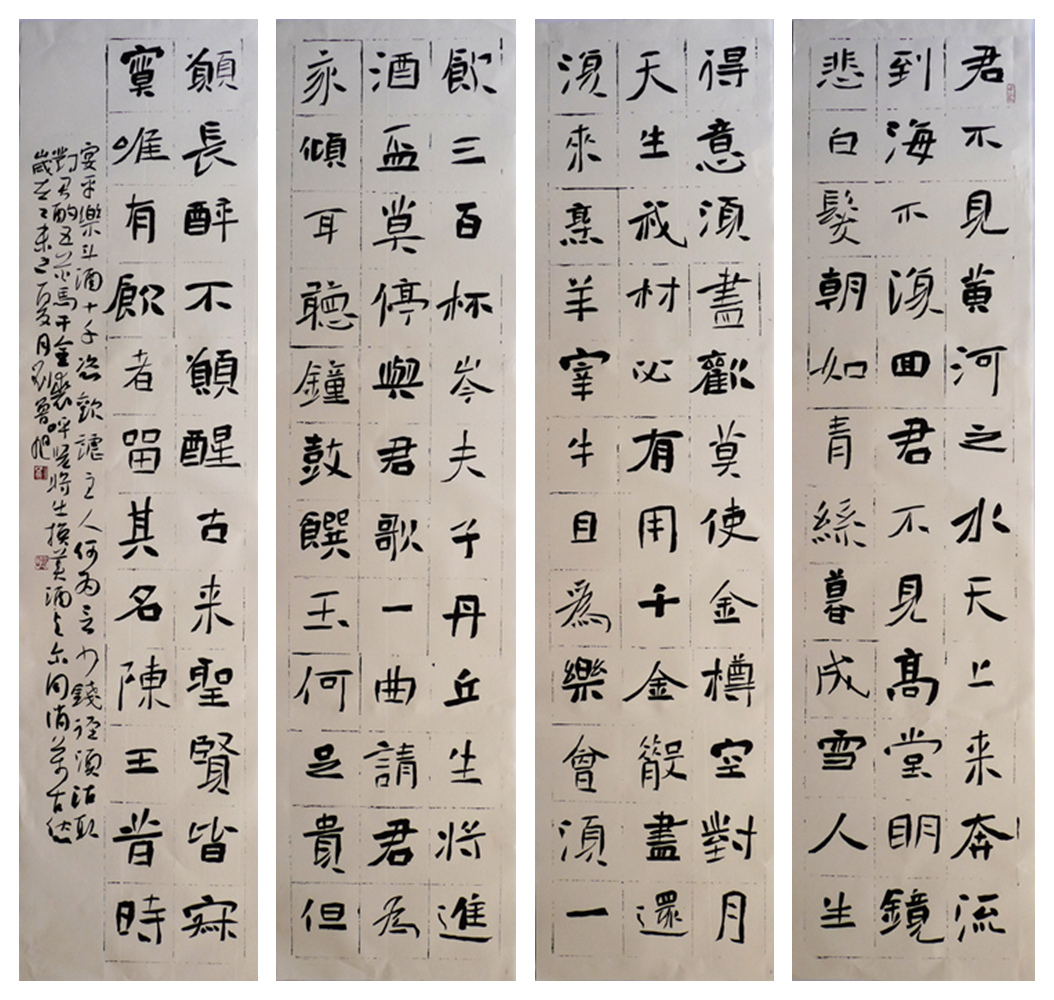 君不見黃河之水天上来奔流
到海不復囬君不見髙堂明鏡
悲白髮朝如青絲暮成雪人生
得意須盡歡莫使金樽空對月
天生我材必有用千金散盡還
復來烹羊宰牛且為樂會須一
飲三百杯岑夫子丹丘生將進
酒盃莫停與君歌一曲請君為
我傾耳聽鐘鼓饌玉何足貴但
願長酔不願醒古来聖賢皆寂
寞唯有飲者留其名陳王昔時
宴平樂斗酒十千恣歡謔主人何為言少錢徑須沽取
對君酌五花馬千金裘呼兒將出換美酒與尔同消萬古愁
歲在乙未之夏月劉魯旭